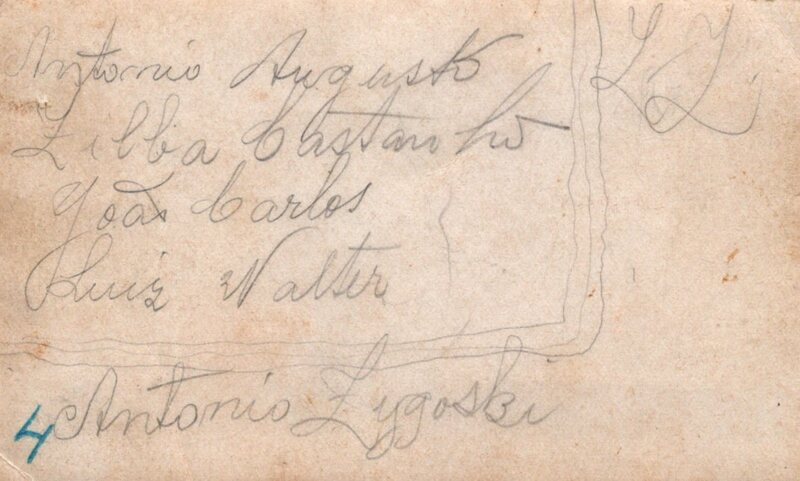 Antonio Augusto
Zilba Castanho
João Carlos
Luiz Walter
Antonio Zygoski
4